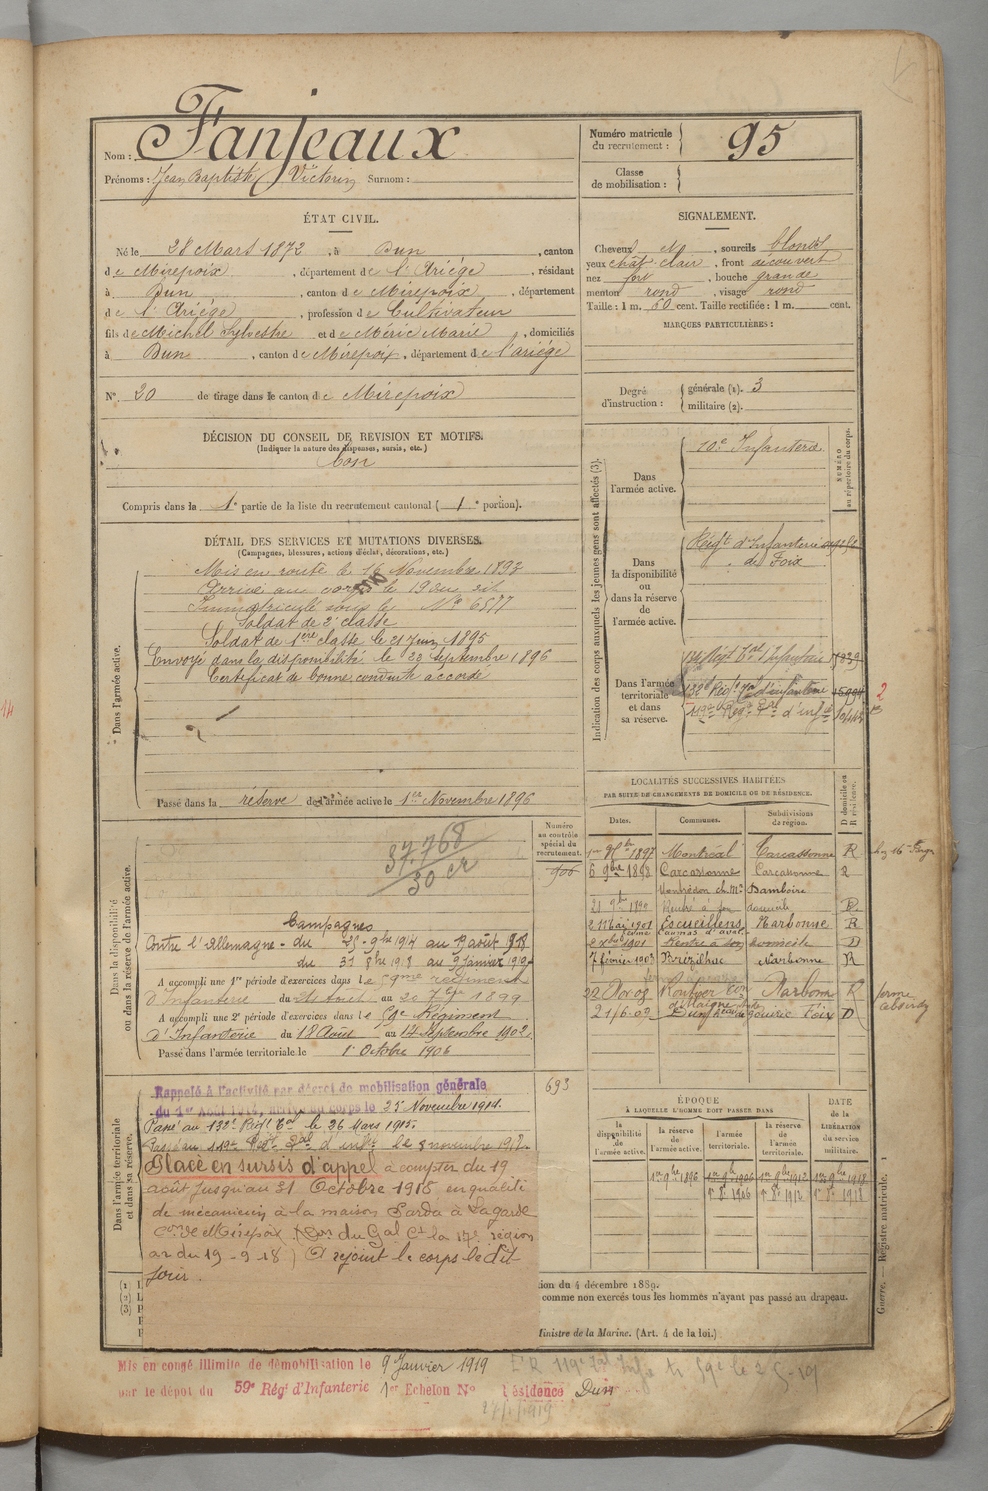 Nom : Fanjeaux
Prénoms : Jean Baptiste Victorin Surnom :
Numéro matricule du recrutement : 95
Classe de mobilisation :
ÉTAT CIVIL.
Né le 28 Mars 1872, à Dun, canton
de Mirepoix, département de l'Ariège, résidant
à Dun, canton de Mirepoix, département
de l'Ariège, profession de Cultivateur
fils de Michel Sylvestre et de Méric Marie, domiciliés
à Dun, canton de Mirepoix, département de l'ariège
N° 20 de tirage dans le canton de Mirepoix
SIGNALEMENT.
Cheveux N, sourcils blonds
yeux chât clair, front découvert
nez fort, bouche grande
menton rond, visage rond
Taille : 1 m. 60 cent. Taille rectifiée : 1 m. cent.
MARQUES PARTICULIÈRES :
Degré d'instruction : générale (1). 3
militaire (2).
DÉCISION DU CONSEIL DE REVISION ET MOTIFS.
(Indiquer la nature des dispenses, sursis, etc.)
bon
Compris dans la 1e partie de la liste du recrutement cantonal (1e portion).
DÉTAIL DES SERVICES ET MUTATIONS DIVERSES.
(Campagnes, blessures, actions d'éclat, décorations, etc.)
Dans l'armée active.
Mis en route le 16 Novembre 1893
Arrivé au corps le 19 du dit
Immatriculé sous le N° 6577
Soldat de 2e classe
Soldat de 1ère classe le 21 Juin 1895
Envoyé dans la disponibilité le 23 Septembre 1896
Certificat de bonne conduite accordé
Passé dans la réserve de l'armée active le 1er Novembre 1896
Indication des corps auxquels les jeunes gens sont affectés (3).
NUMÉRO au répertoire du corps.
Dans l'armée active.
Infanterie
Dans la disponibilité ou dans la réserve de l'armée active.
Régt d'Infanterie
de Foix
Dans l'armée territoriale et dans sa réserve.
132e Régt Tal d'infanterie 15994
119e Regt Tal d'inf
2
Dans la disponibilité ou dans la réserve de l'armée active.
Numéro au contrôle spécial du recrutement.
906
37.768
30 cr
Campagnes
Contre l'Allemagne - du 25-9bre 1914 au août 1918
du 31 8bre 1918 au 9 janvier 1919
A accompli une 1re période d'exercices dans le 59me régiment
d'Infanterie du 24 Aout au 20 7bre 1899
A accompli une 2e période d'exercices dans le 59e Régiment
d'Infanterie du 18 Août au 14 Septembre 1902.
Passé dans l'armée territoriale le 1er Octobre 1906
LOCALITÉS SUCCESSIVES HABITÉES
PAR SUITE DE CHANGEMENTS DE DOMICILE OU DE RÉSIDENCE.
Dates. Communes. Subdivisions de région. D domicile ou R résidence.
1897 Montréal Carcassonne R
6 9bre 1898 Carcassonne Carcassonne R
domicile D
2 Mai 1901 Escueillens Narbonne R
1901 Rentré à son domicile D
7 février 1903 Brézilhac Narbonne R
22 Nov 08 Narbonne R
21/6-09 Dun Foix D
Dans l'armée territoriale et dans sa réserve.
693
Rappelé à l'activité par décret de mobilisation générale
du 1er Août 1914, arrivé au corps le 25 Novembre 1914.
Passé au 132e Régt Tal le 26 Mars 1915.
Passé au 119e Régt Tal d'infie le 3 novembre 1918
Placé en sursis d'appel à compter du 19
août jusqu'au 31 Octobre 1918 en qualité
de mécanicien à la maison Sarda à Lagarde
Con de Mirepoix. (Don du Gal Ct la 17e région
en du 19-9-18) A rejoint le corps le dit
jour.
ÉPOQUE
À LAQUELLE L'HOMME DOIT PASSER DANS
la disponibilité de l'armée active. la réserve de l'armée active. l'armée territoriale. la réserve de l'armée territoriale.
DATE de la LIBÉRATION du service militaire.
1er 9bre 1896 1er 9bre 1906 1er 9bre 1912 1er 9bre 1918
1er 8e 1906 1er 8e 1912 1er 8e 1918
Guerre. — Registre matricule. 1
(1)
(2)
(3)
tion du 4 décembre 1889.
comme non exercés tous les hommes n'ayant pas passé au drapeau.
Ministre de la Marine. (Art. 4 de la loi.)
Mis en congé illimité de démobilisation le 9 Janvier 1919
par le dépôt du 59e Régt d'Infanterie 1er Echelon N° Résidence Dun